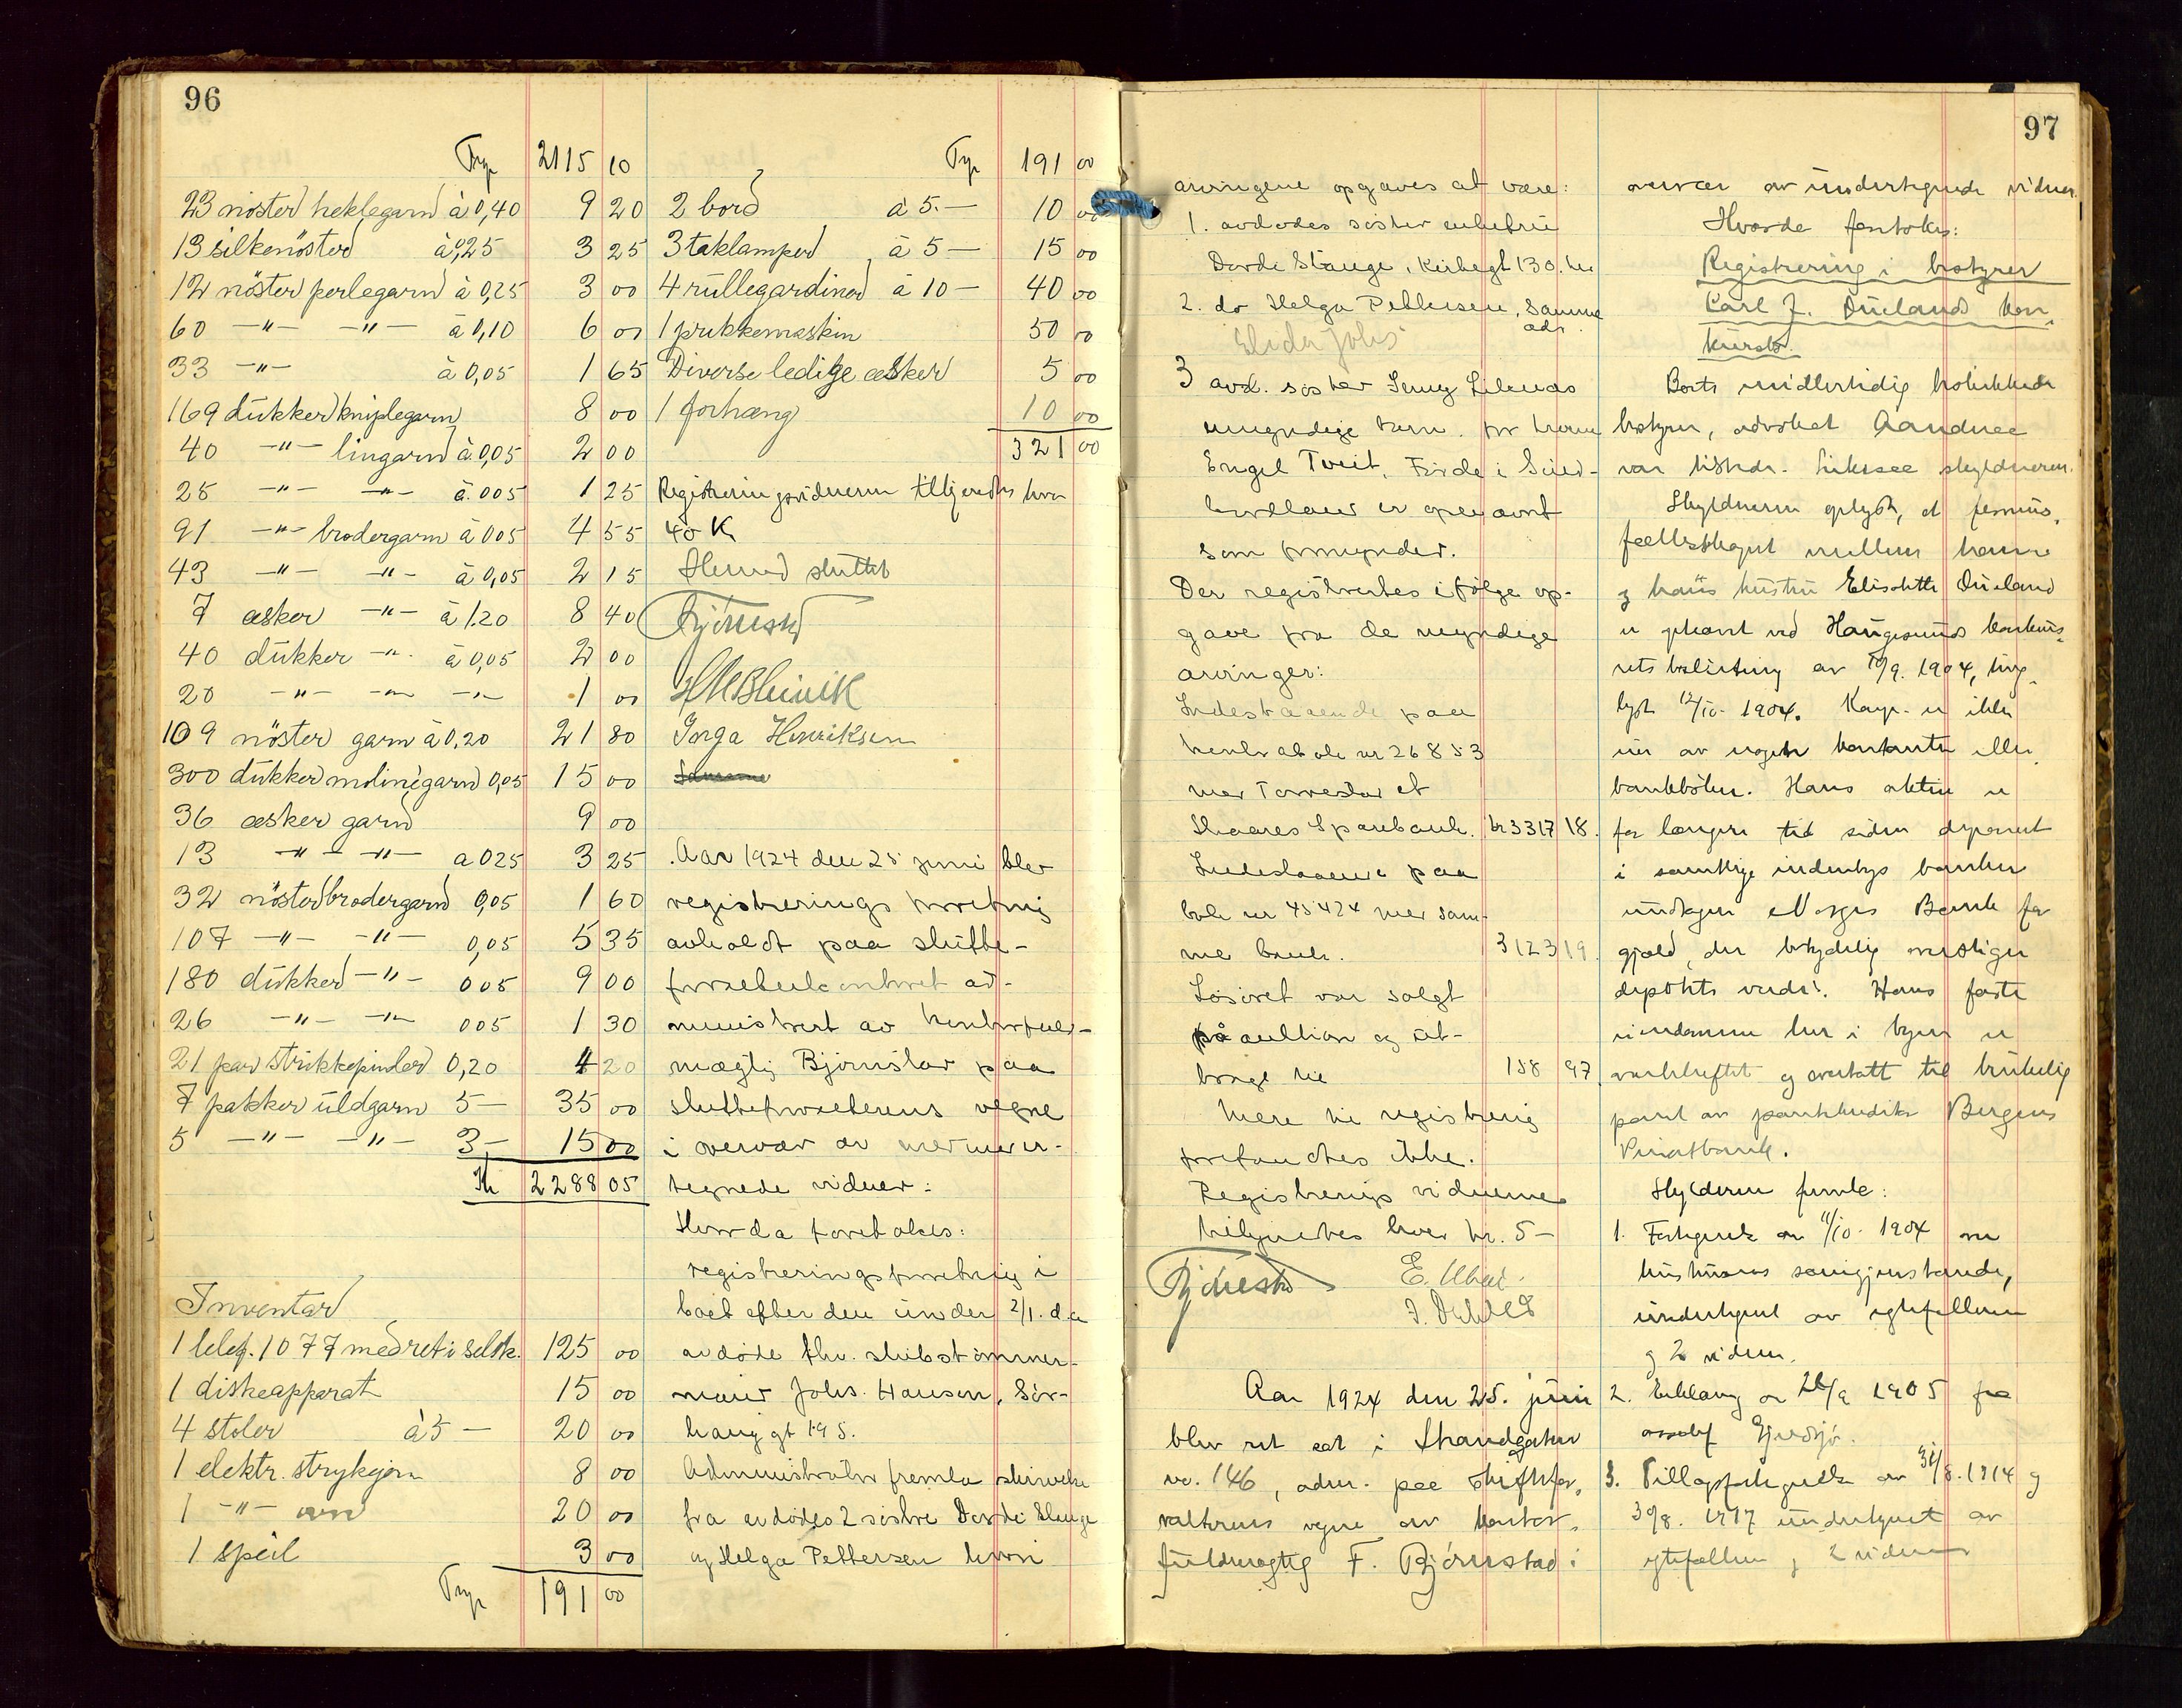 96
Trp 2115 10
23 nöster heklegarn à 0,40 9 20
13 silkenöster à 0,25 3 25
12 nöster perlegarn à 0,25 3 00
60 -"- -"- à 0,10 6 00
33 -"- à 0,05 1 65
169 dukker kniplegarn 8 00
40 -"- lingarn à 0,05 2 00
25 -"- -"- à 005 1 25
91 -"- brodergarn à 005 4 55
43 -"- -"- à 0,05 2 15
7 æsker -"- à 1.20 8 40
40 dukker -"- à 0,05 2 00
20 -"- -"- -"- 1 00
109 nöster garn à 0,20 21 80
300 dukker molinégarn 0,05 15 00
36 æsker garn 9 00
13 -"- -"- a 025 3 25
32 nöster brodergarn 0,05 1 60
107 -"- -"- 0,05 5 35
180 dukker -"- 005 9 00
26 -"- -"- 005 1 30
21 par strikkepinder 0,20 4 20
7 pakker uldgarn 5- 35 00
5 -"- -"- 3- 15 00
Kr 2288 05
Inventar
1 telef. 1077 med ret i selsk. 125 00
1 diskeapparat 15 00
4 stoler à 5- 20 00
1 elektr. strykejern 8 00
1 -"- ovn 20 00
1 speil 3 00
Trp 191 00
Trp 191 00
2 bord à 5.- 10 00
3 taklamper à 5- 15 00
4 rullegardiner à 10- 40 00
1 prikkemaskin 50 00
Diverse ledige æsker 5 00
1 forhæng 10 00
321 00
Registreringsvidnerne tilkjendtes hver
40 K
Hermed sluttet
Bjørnstad
Inga Henriksen
Aar 1924 den 25 juni blev
registrerings forretning
avholdt paa skifte-
forvalterkontoret ad-
ministrert av kontorfuld-
mægtig Bjørnstad paa
skifteforvalterens vegne
i overvær av nedenunder-
tegnede vidner:
Hvorda foretokes:
registreringsforretning i
boet efter den under 2/1. d.a
avdøde fhv. skibstømmer-
mand Johs. Hansen, Sør-
hauggt 195.
Administrator fremla skrivelse
fra avdødes 2 søstre Dorde Stange
og Helga Pettersen hvori
97
arvingene opgaves at være:
1. avdødes søster enkefru
Dorde Stange, Kirkegt 130. her
2. do Helga Pettersen, samme
adr.
Elida Johs
3 avd. søster Jenny
umyndige barn. for hvem
Engel Tveit, Førde i Sund-
hordland er opnævnt
som formynder.
Der registrertes ifølge op-
gave fra de myndige
arvinger:
Indestaaende paa
kontrabok nr 26853
med Torvestad et
Skaares Sparebank. kr 3317 18.
Indestaaende paa
bok nr 45424 med sam-
me bank. 3123 19.
Løsøret var solgt
på auktion og ut-
bragt til 158 97.
Mere til registrering
forefandtes ikke.
Registreringsvidnerne
tilkjendtes hver kr. 5-
Bjørnstad
Aar 1924 den 25. juni
blev ret sat i Strandgaten
no. 146, adm. paa skiftefor-
valterens vegne av kontor-
fuldmægtig F. Bjørnstad i
overvær av undertegnede vidner.
Hvorda foretokes:
Registrering i bostyrer
Carl J. Dueland kon-
kursbo.
Boets midlertidig beskikkede
bostyrer, advokat Aandnes
var tilstede. Likesaa skyldneren.
Skyldneren oplyste, at formues-
fællesskapet mellem ham
og hans hustru Elisabeth Dueland
er ophævet ved Haugesunds konkurs-
rets beslutning av 10/9. 1904, ting-
lyst 12/10. 1904. Karp. er ikke
eier av nogen kontanter eller
bankbøker. Hans aktier er
for længere tid siden deponert
i samtlige indenbys banker
undtagen Norges Bank for
gjæld, der betydelig overstiger
depotets verdi. Hans faste
eiendomme her i byen er
pantheftet og overtatt til brukelig
pant av pantekreditor Bergens
Privatbank.
Skyldneren fremla:
1. Ektepakt av 11/10. 1904 om
hustruens særgjenstande,
undertegnet av egtefellerne
og 2 vidner.
2. Erklæring av 26/9 1905 fra
3. Tillægsektepakt av 31/8. 1914 og
30/8. 1917 undertegnet av
egtefellerne og 2 vidner